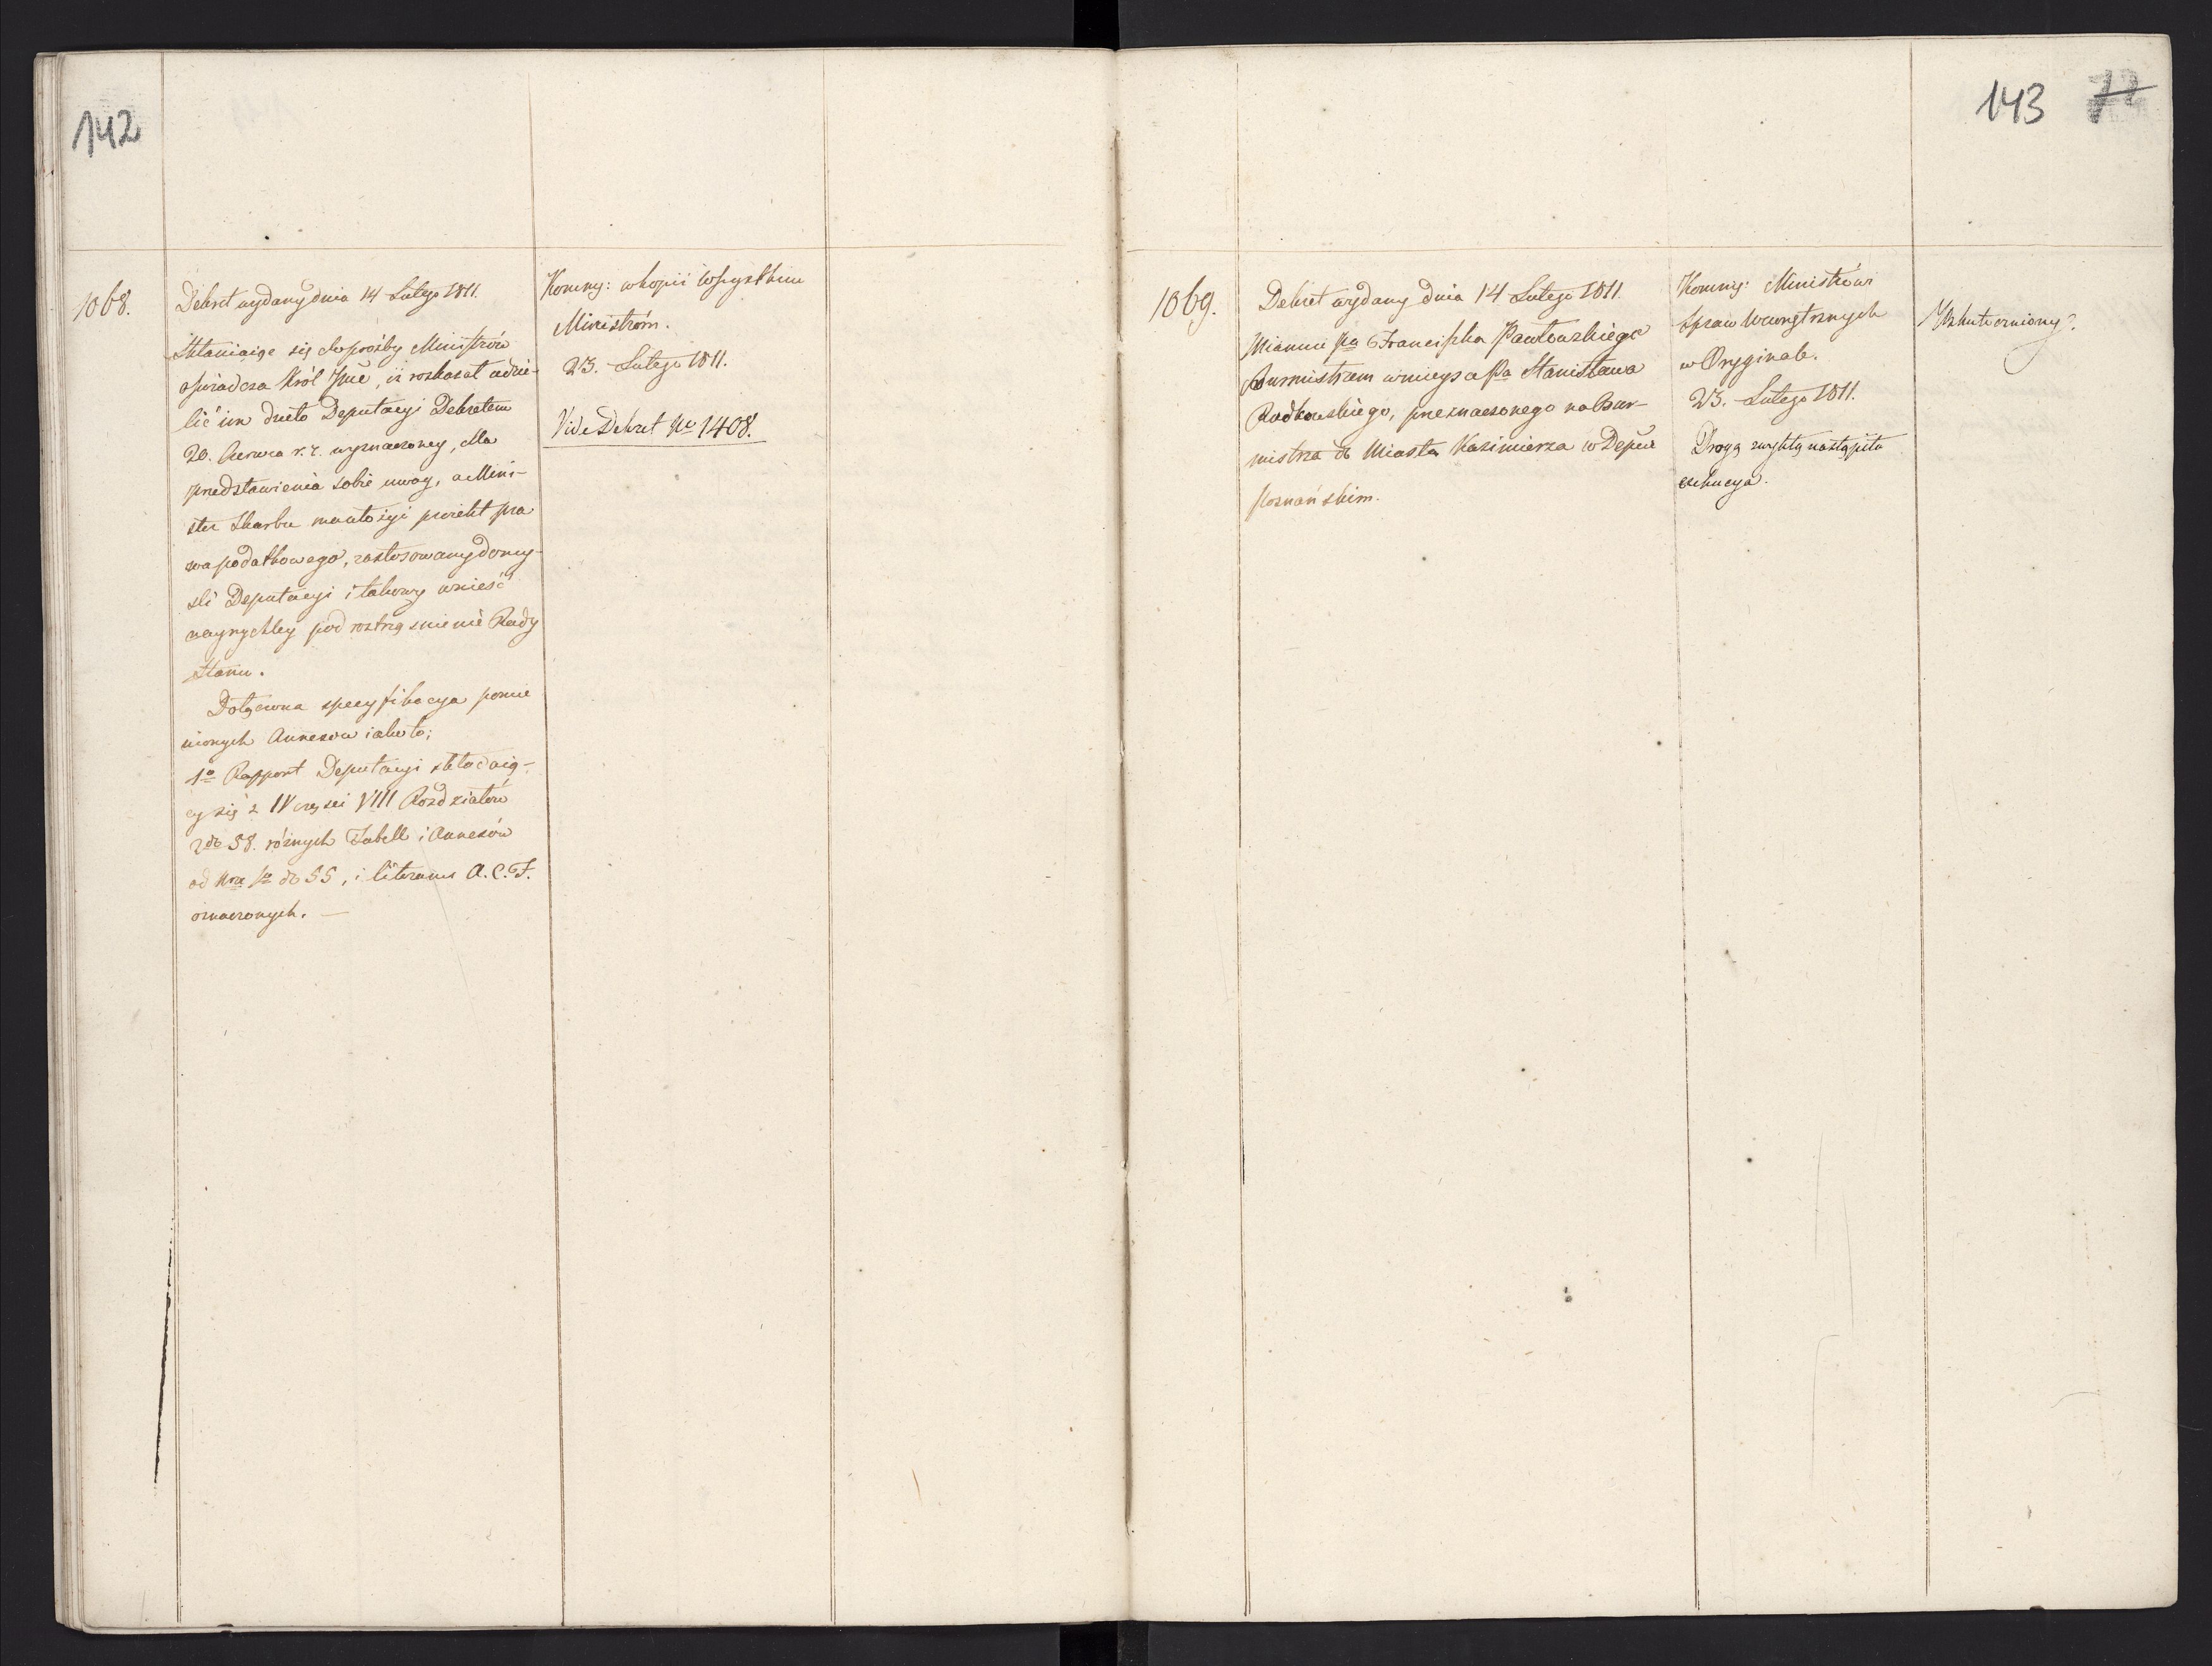 142
1068.
Dekret wydany dnia 14 Lutego 1811.
Skłaniaiąc się do prośby Ministrów
oświadcza Król Jmć, iż roskazał udzie-
lić im dzieło Deputacyi Dekretem
20. Czerwca r. z. wyznaczoney, dla
przedstawienia sobie uwag, a Mini-
ster Skarbu ma ułożyć proiekt pra
wa podatkowego, zastosowany do my-
śli Deputacyi i takowy wnieść
nayrychley pod roztrząśnienie Rady
Stanu.
Dołączona specyfikacya pomie
nionych Annexow iako to;
1o Rapport Deputacyi składaią-
cy się z IV części VIII Rozdziałów
2do 58. różnych Tabell i Annexów
od Nra 1o do 55, i literami A. C. F.
oznaczonych. —
Kommy: w kopii wszystkim
Ministróm.
23. Lutego 1811.
Vide Dekret No 1408.
143 72
1069.
Dekret wydany dnia 14 Lutego 1811
Mianuie Pa Franciszka Pawłowskiego
Burmistrzem w mieysce Pa Stanisława
Radkowskiego, przeznaczonego na Bur-
mistrza do Miasta Kazimierza w Depcie
Poznańskim.
Kommy: Ministrowi
Spraw Wewnętrznych
w Oryginale.
23. Lutego 1811.
Drogą zwykłą nastąpiła
exekucya.
Uskuteczniony.